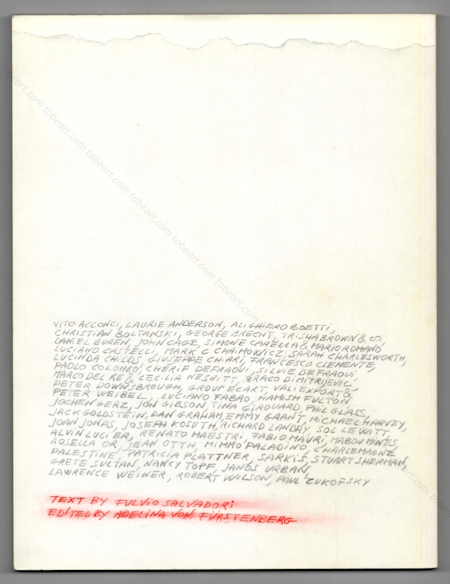 VITO ACCONCI, LAURIE ANDERSON, ALIGHIERO BOETTI,
CHRISTIAN BOLTANSKI, GEORGE BRECHT, TRISHA BROWN & CO,
DANIEL BUREN, JOHN CAGE, SIMONE CARELLA & MARIO ROMANO,
LUCIANO CASTELLI, MARK C CHAIMOWICZ, SARAH CHARLESWORTH,
LUCINDA CHILDS, GIUSEPPE CHIARI, FRANCESCO CLEMENTE,
PAOLO COLOMBO, CHÉRIF DEFRAOUI, SILVIE DEFRAOUI
MARCO DEL RE & CECILIA NESBITT, BRACO DIMITRIJEVIC
PETER DOWNSBROUGH, GROUP ECART, VALI EXPORT &
PETER WEIBEL, LUCIANO FABRO, HAMISH FULTON
JOCHEN GERZ, JON GIBSON, TINA GIROUARD, PHIL GLASS,
JACK GOLDSTEIN, DAN GRAHAM, EMMY GRANT, MICHAEL HARVEY,
JOAN JONAS, JOSEPH KOSUTH, RICHARD LANDRY, SOL LEVATT,
ALVIN LUCIER, RENATO MAESTRI, FABIO MAURI, MABOU MINES,
ROSELLA OR, JEAN OTTH, MIMMO PALADINO, CHARLEMAGNE
PALESTINE, PATRICIA PLATTNER, SARKIS, STUART SHERMAN,
GRETE SULTAN, NANCY TOPF, JANOS URBAN,
LAWRENCE WEINER, ROBERT WILSON, PAUL ZUKOFSKY
TEXT BY FULVIO SALVADORI
EDITED BY ADELINA VON FÜRSTENBERG